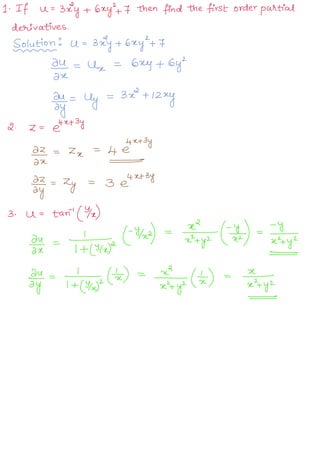 1. If u = 3x²y + 6xy² + 7 then find the first order partial
derivatives.
Solution: u = 3x²y + 6xy² + 7
∂u/∂x = uₓ = 6xy + 6y²
∂u/∂y = u_y = 3x² + 12xy
2. z = e^(4x+3y)
∂z/∂x = zₓ = 4 e^(4x+3y)
∂z/∂y = z_y = 3 e^(4x+3y)
3. u = tan⁻¹(y/x)
∂u/∂x = 1/(1+(y/x)²) (-y/x²) = x²/(x²+y²) (-y/x²) = -y/(x²+y²)
∂u/∂y = 1/(1+(y/x)²) (1/x) = x²/(x²+y²) (1/x) = x/(x²+y²)